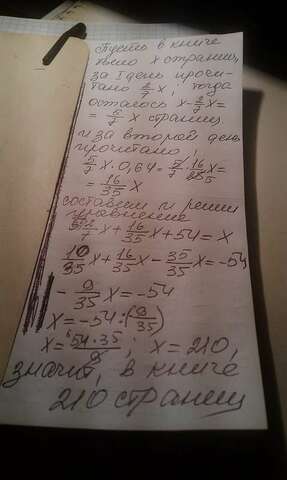 Пусть в книге
было x страниц,
за I день прочи-
тано 2/7 x, тогда
осталось x-2/7 x=
= 5/7 x страниц
и за второй день
прочитано
5/7 x · 0,64 = 5/7 · 16/25 x =
= 16/35 x
составим и решим
уравнение
2/7 x + 16/35 x + 54 = x
10/35 x + 16/35 x - 35/35 x = -54
- 9/35 x = -54
x = -54 : (9/35)
x = 54·35/9 ; x = 210,
значит, в книге
210 страниц